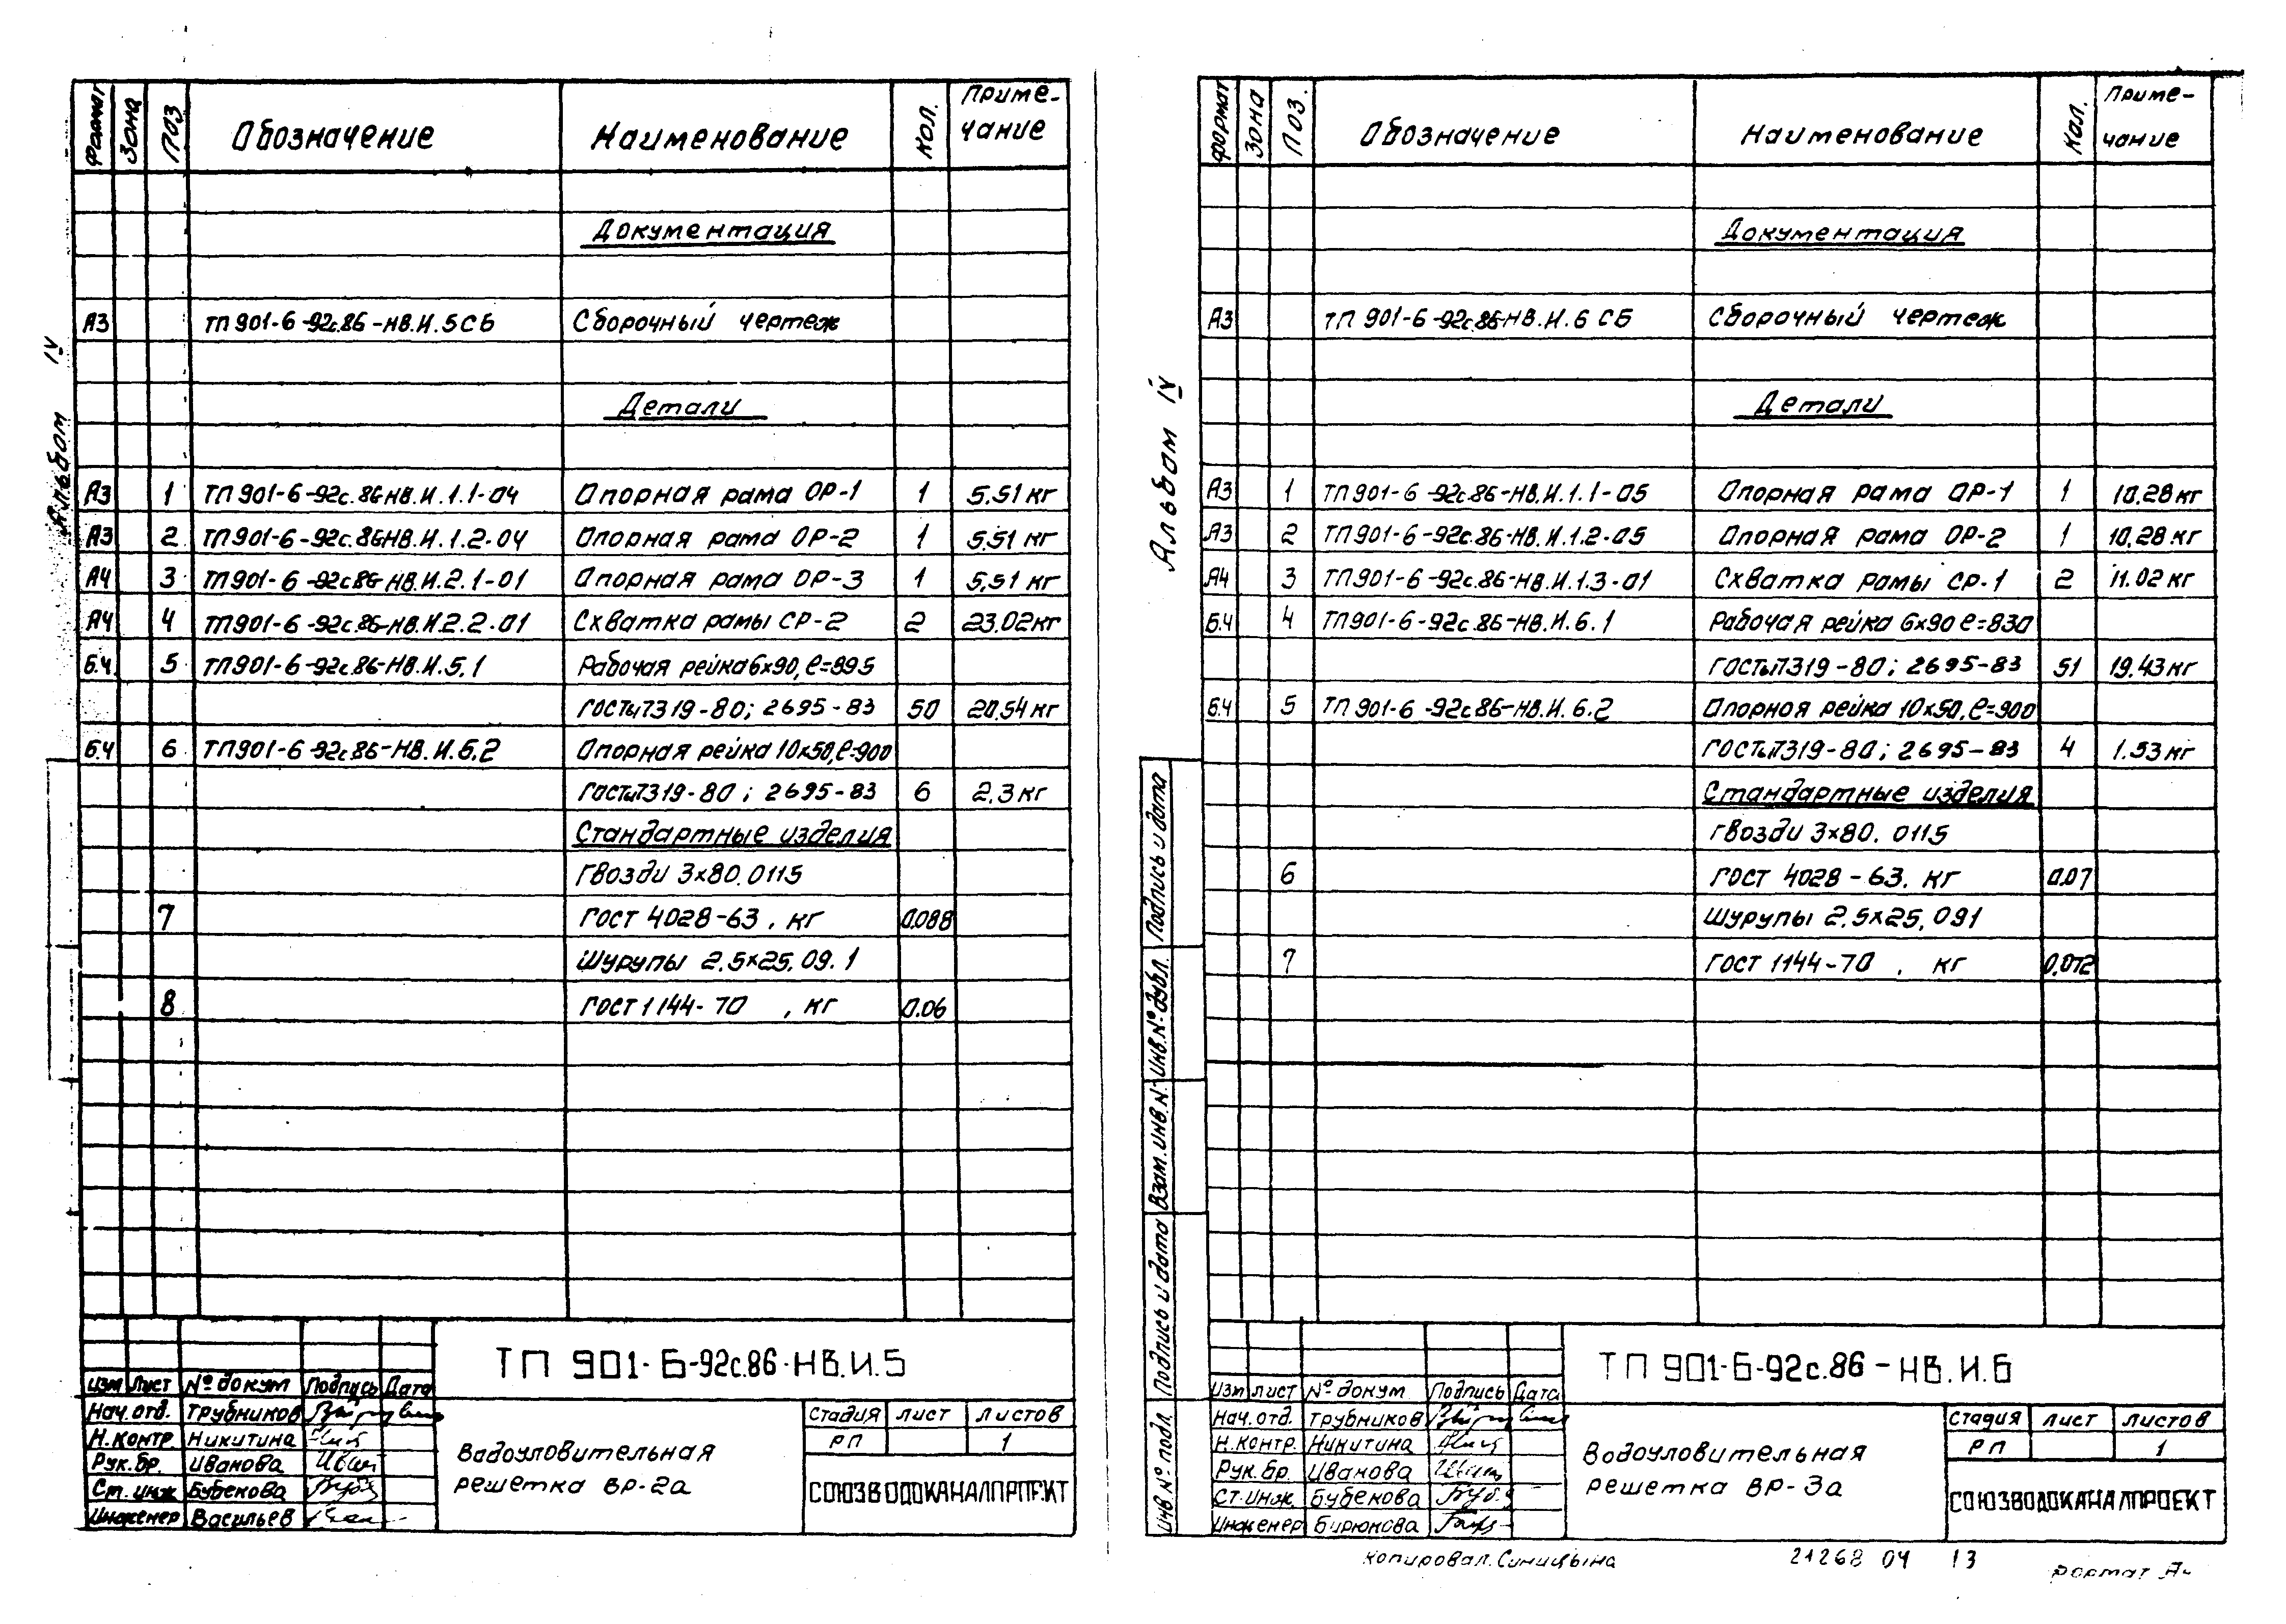 Альбом IV
Формат Зона Поз Обозначение Наименование Кол. Приме-
чание
Документация
А3 ТП 901-6-92с.86-НВ.И.5СБ Сборочный чертеж
Детали
А3 1 ТП 901-6-92с.86-НВ.И.1.1-04 Опорная рама ОР-1 1 5.51 кг
А3 2 ТП 901-6-92с.86-НВ.И.1.2-04 Опорная рама ОР-2 1 5.51 кг
А4 3 ТП 901-6-92с.86-НВ.И.2.1-01 Опорная рама ОР-3 1 5,51 кг
А4 4 ТП 901-6-92с.86-НВ.И.2.2-01 Схватка рамы СР-2 2 23.02 кг
Б.Ч. 5 ТП 901-6-92с.86-НВ.И.5.1 Рабочая рейка 6х90, ℓ=895
ГОСТы 7319-80; 2695-83 50 20.54 кг
Б.Ч 6 ТП 901-6-92с.86-НВ.И.5.2 Опорная рейка 10х50, ℓ=900
ГОСТы 7319-80; 2695-83 6 2.3 кг
Стандартные изделия
Гвозди 3х80.0115
7 ГОСТ 4028-63, кг 0.088
Шурупы 2.5х25.09.1
8 ГОСТ 1144-70 , кг 0.06
ТП 901-6-92с.86-НВ.И.5
Изм Лист № докум Подпись Дата
Нач.отд. Трубников
Н.контр. Никитина
Рук.бр. Иванова
Ст.инж Бубекова
Инженер Васильев
Водоуловительная
решетка ВР-2а
Стадия Лист Листов
РП 1
СОЮЗВОДОКАНАЛПРОЕКТ
Альбом IV
Формат Зона Поз. Обозначение Наименование Кол. Приме-
чание
Документация
А3 ТП 901-6-92с.86-НВ.И.6 СБ Сборочный чертеж
Детали
А3 1 ТП 901-6-92с.86-НВ.И.1.1-05 Опорная рама ОР-1 1 10.28 кг
А3 2 ТП 901-6-92с.86-НВ.И.1.2-05 Опорная рама ОР-2 1 10.28 кг
А4 3 ТП 901-6-92с.86-НВ.И.1.3-01 Схватка рамы СР-1 2 11.02 кг
Б.Ч 4 ТП 901-6-92с.86-НВ.И.6.1 Рабочая рейка 6х90 ℓ=830
ГОСТы 7319-80; 2695-83 51 19.43 кг
Б.Ч 5 ТП 901-6-92с.86-НВ.И.6.2 Опорная рейка 10х50, ℓ=900
ГОСТы 7319-80; 2695-83 4 1.53 кг
Стандартные изделия
Гвозди 3х80.0115
6 ГОСТ 4028-63. кг 0.07
Шурупы 2.5х25,091
7 ГОСТ 1144-70 , кг 0.072
Инв № подл. Подпись и дата Взам.инв.№ Инв.№ дубл. Подпись и дата
ТП 901-6-92с.86-НВ.И.6
Изм Лист № докум. Подпись Дата
Нач.отд. Трубников
Н.контр. Никитина
Рук.бр. Иванова
Ст.инж. Бубекова
Инженер Бирюкова
Водоуловительная
решетка ВР-3а
Стадия Лист Листов
РП 1
СОЮЗВОДОКАНАЛПРОЕКТ
Копировал. Синицына 21268 04 13 Формат А4